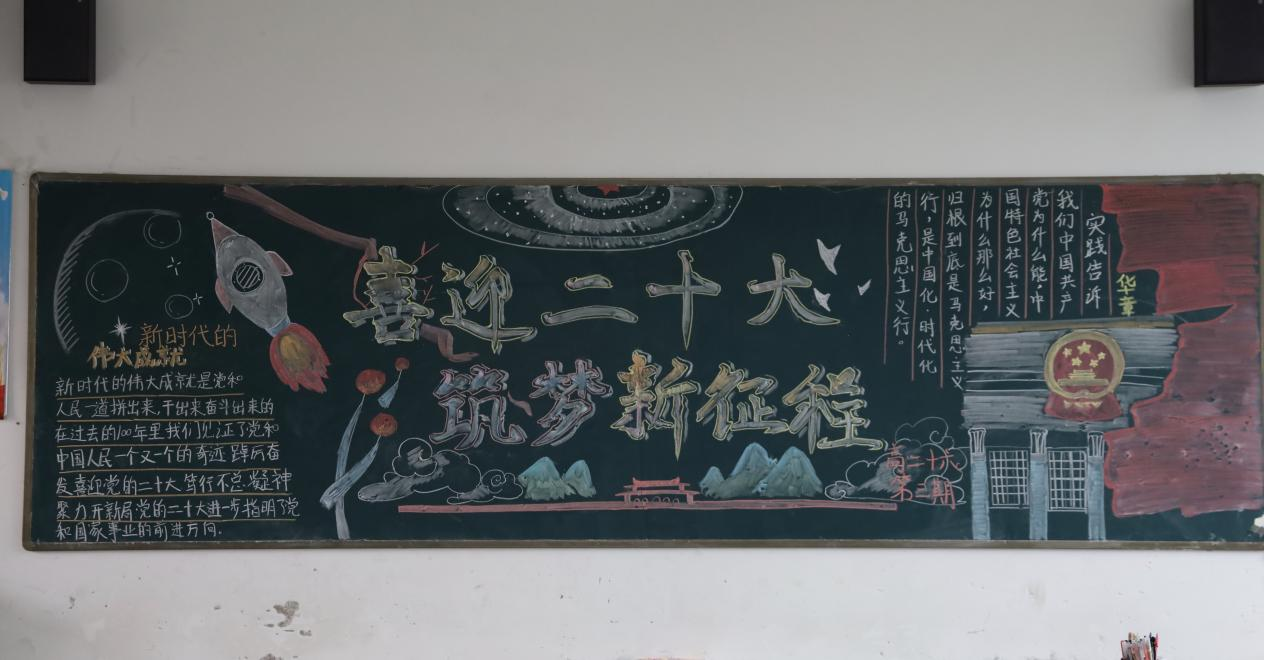 喜迎二十大
筑梦新征程
新时代的
伟大成就
新时代的伟大成就是党和
人民一道拼出来、干出来、奋斗出来的
在过去的100年里我们见证了党和
中国人民一个又一个的奇迹,踔厉奋
发喜迎党的二十大,笃行不怠,凝神
聚力开新局党的二十大进一步指明了党
和国家事业的前进方向.
华章
实践告诉
我们中国共产
党为什么能,中
国特色社会主义
为什么那么好,
归根到底是马克思主义
行,是中国化·时代化
的马克思主义行。
第三期